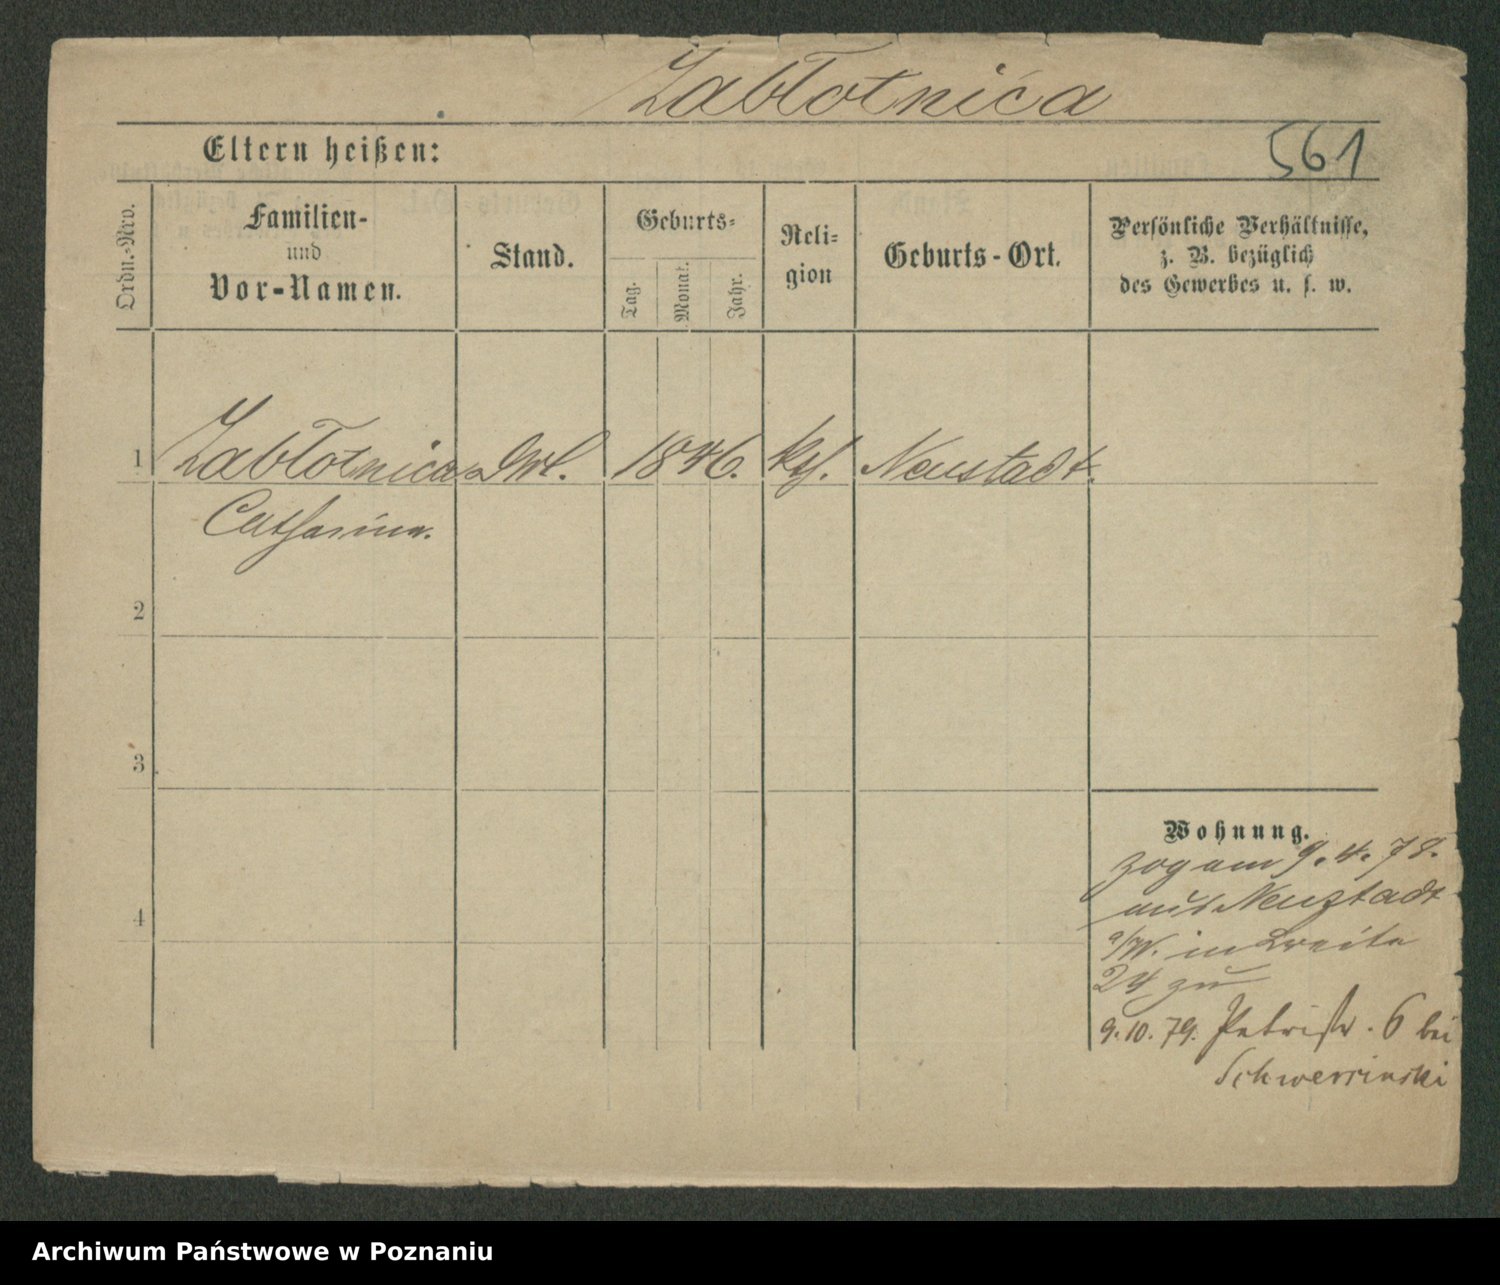 Zabłotnića
Eltern heißen:
561
Ordn.-Nro.
Familien-
und
Vor-Namen.
Stand.
Geburts-
Tag.
Monat.
Jahr.
Reli-
gion
Geburts-Ort.
Persönliche Verhältnisse,
z. B. bezüglich
des Gewerbes u. s. w.
1 Zabłotnica 1846. kth. Neustadt.
Catharina.
2
3
Wohnung.
zog am 9. 4. 78.
aus Neustadt
4
a/W. in Breite
24 zu
9. 10. 79. Petristr. 6 bei
Schwersinski
Archiwum Państwowe w Poznaniu